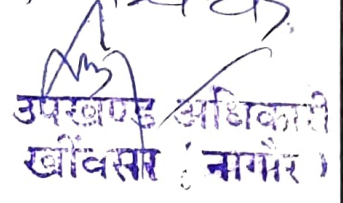 उपखण्ड अधिकारी
खींवसर ( नागौर )